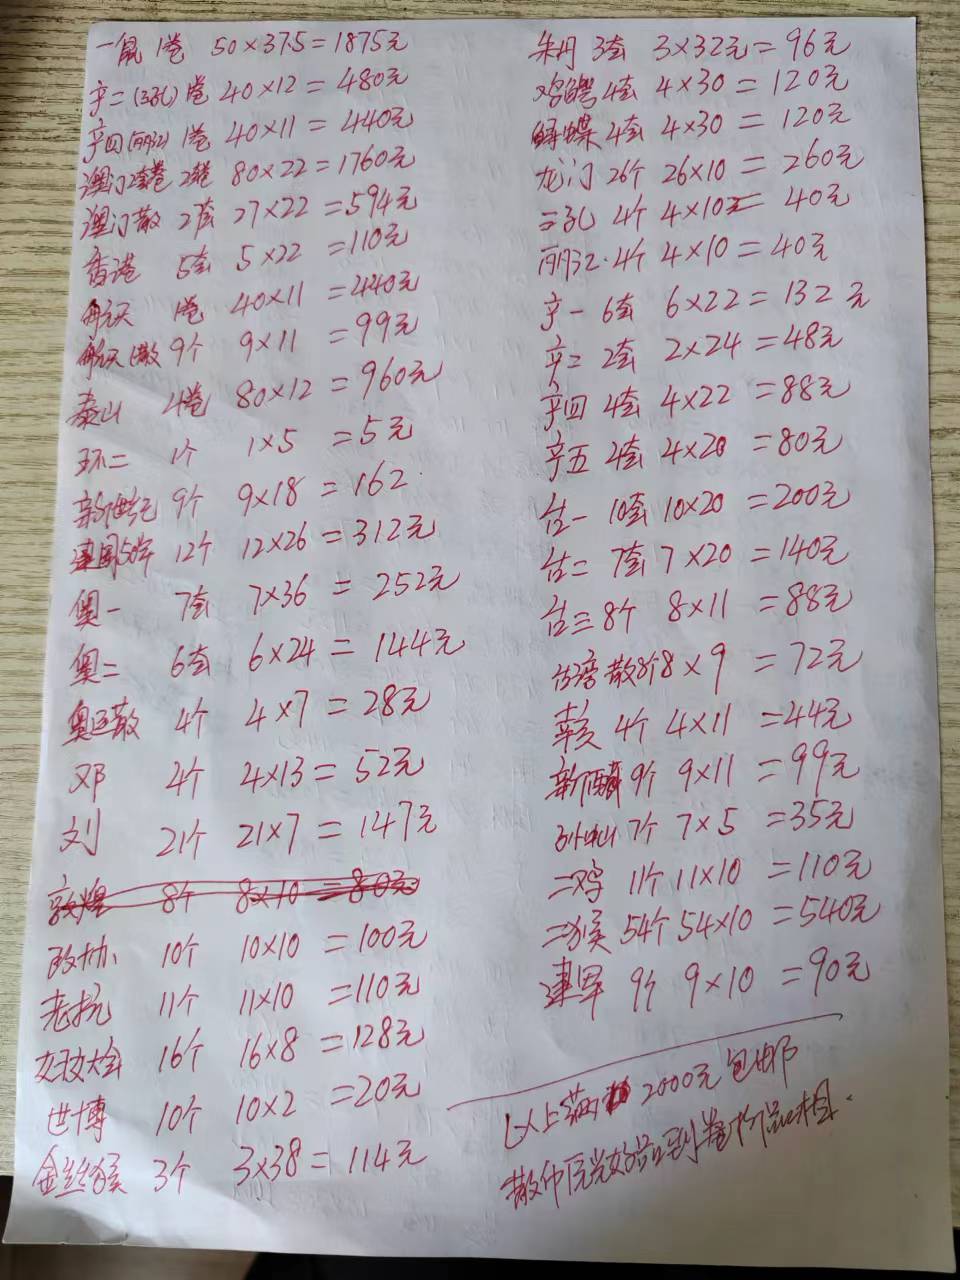 一鼠 1卷 50×37.5=1875元
字二(三孔)1卷 40×12=480元
字四(丽江)1卷 40×11=440元
澳门2套卷 2卷 80×22=1760元
澳门散 27套 27×22=594元
香港 5套 5×22=110元
航天 1卷 40×11=440元
航天散 9个 9×11=99元
泰山 4卷 80×12=960元
环二 1个 1×5=5元
新世纪 9个 9×18=162
建国50年 12个 12×26=312元
奥一 7套 7×36=252元
奥二 6套 6×24=144元
奥运散 4个 4×7=28元
邓 4个 4×13=52元
刘 21个 21×7=147元
敦煌 8个 8×10=80元
政协 10个 10×10=100元
老抗 11个 11×10=110元
妇女大会 16个 16×8=128元
世博 10个 10×2=20元
金丝猴 3个 3×38=114元
朱丹 3套 3×32元=96元
4套 4×30=120元
蝶 4套 4×30=120元
龙门 26个 26×10=260元
三孔 4个 4×10元=40元
丽江 4个 4×10=40元
字一 6套 6×22=132元
字二 2套 2×24=48元
字四 4套 4×22=88元
字五 4套 4×20=80元
台一 10套 10×20=200元
台二 7套 7×20=140元
台三 8个 8×11=88元
散8个 8×9=72元
4个 4×11=44元
新 9个 9×11=99元
孙中山 7个 7×5=35元
二鸡 11个 11×10=110元
二猴 54个 54×10=540元
建军 9个 9×10=90元
以上满2000元包邮
散币原光好品到卷拆品相.